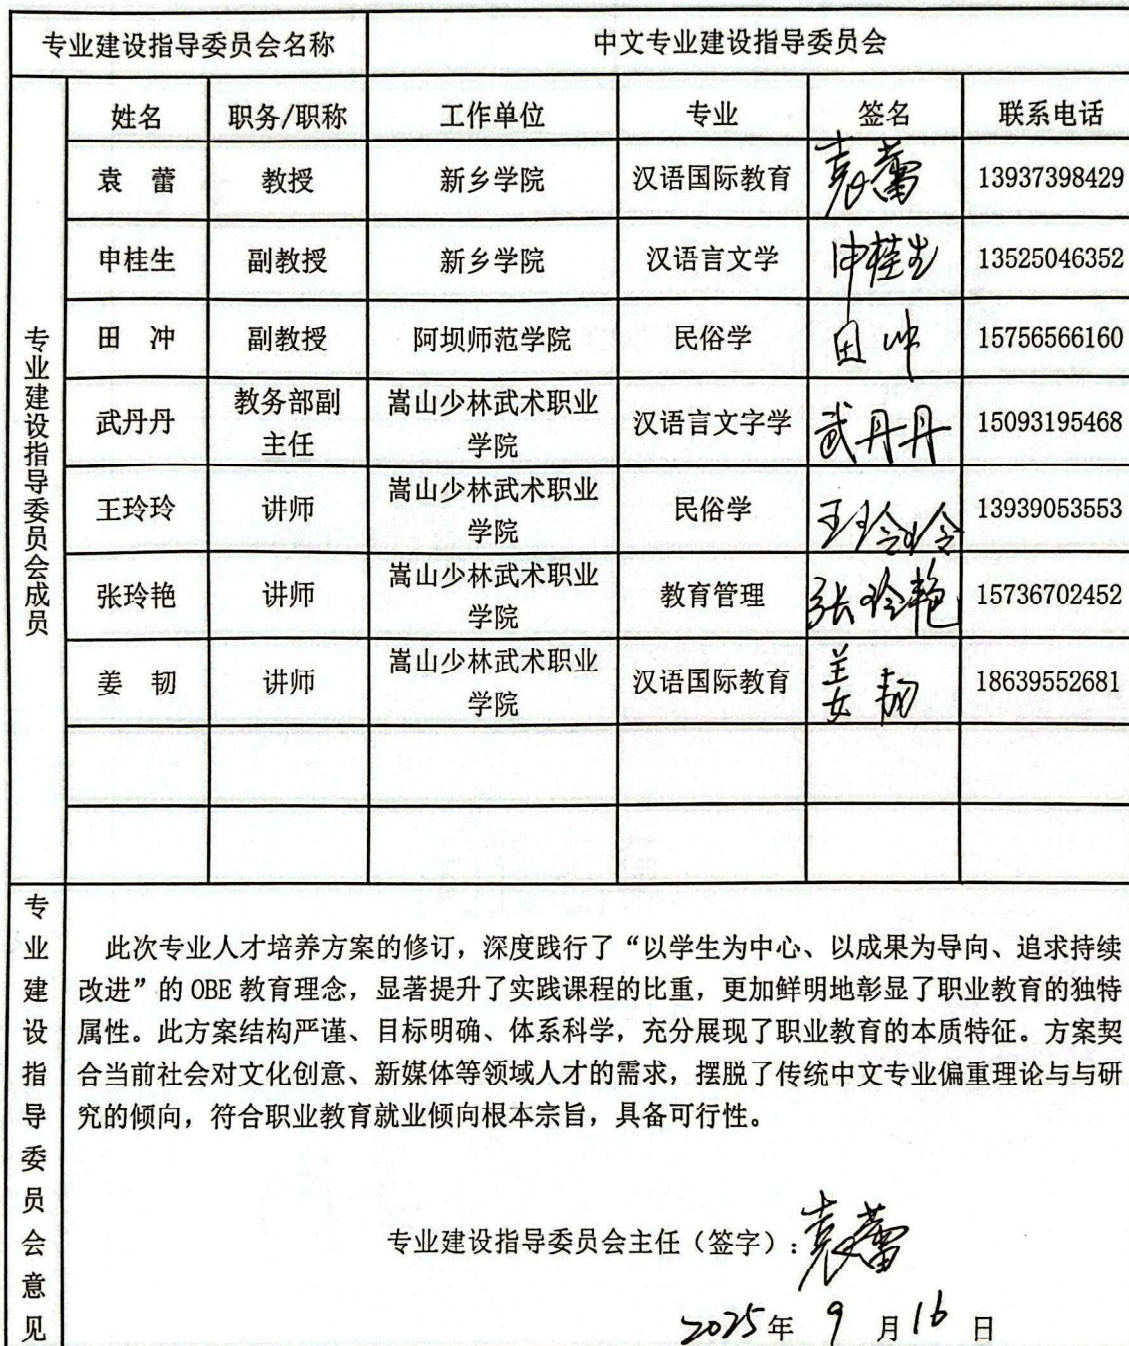 专业建设指导委员会名称 中文专业建设指导委员会
专业建设指导委员会成员
姓名 职务/职称 工作单位 专业 签名 联系电话
袁 蕾 教授 新乡学院 汉语国际教育 袁蕾 13937398429
申桂生 副教授 新乡学院 汉语言文学 申桂生 13525046352
田 冲 副教授 阿坝师范学院 民俗学 田冲 15756566160
武丹丹 教务部副主任 嵩山少林武术职业学院 汉语言文字学 武丹丹 15093195468
王玲玲 讲师 嵩山少林武术职业学院 民俗学 王玲玲 13939053553
张玲艳 讲师 嵩山少林武术职业学院 教育管理 张玲艳 15736702452
姜 韧 讲师 嵩山少林武术职业学院 汉语国际教育 姜韧 18639552681
专业建设指导委员会意见
此次专业人才培养方案的修订，深度践行了“以学生为中心、以成果为导向、追求持续
改进”的 OBE 教育理念，显著提升了实践课程的比重，更加鲜明地彰显了职业教育的独特
属性。此方案结构严谨、目标明确、体系科学，充分展现了职业教育的本质特征。方案契
合当前社会对文化创意、新媒体等领域人才的需求，摆脱了传统中文专业偏重理论与与研
究的倾向，符合职业教育就业倾向根本宗旨，具备可行性。
专业建设指导委员会主任（签字）：袁蕾
2025年 9 月16 日